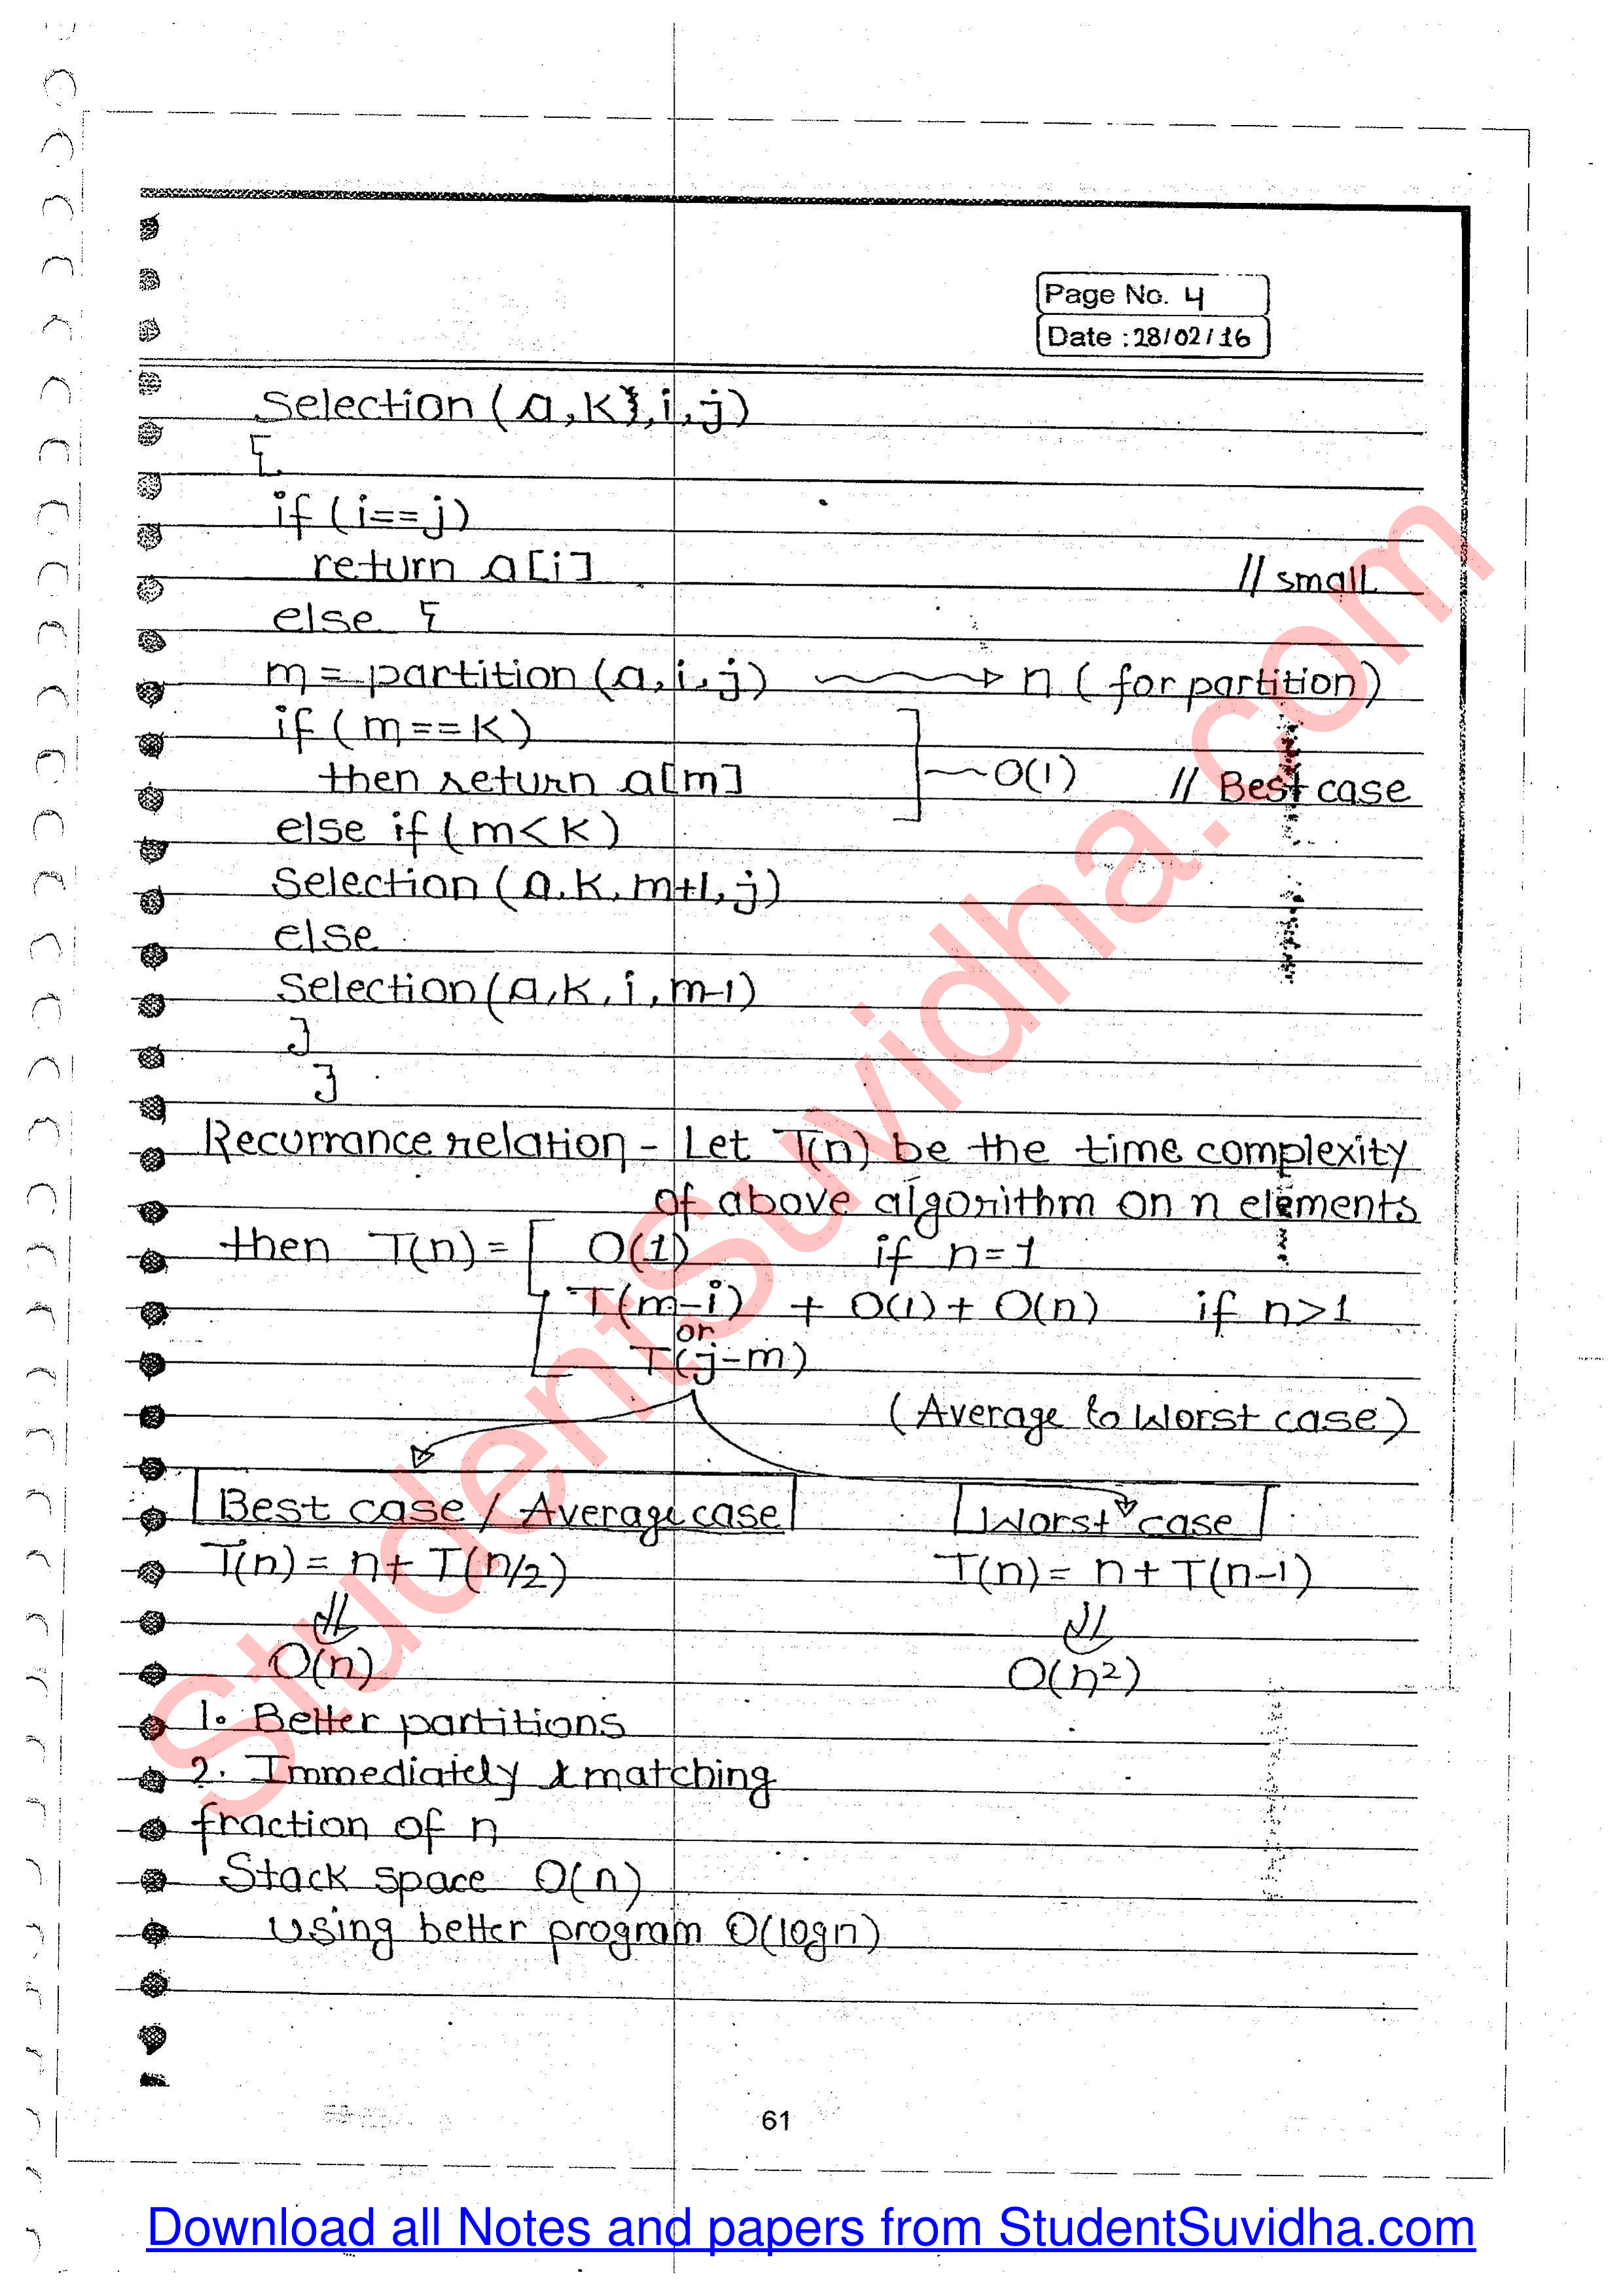 Page No. 4
Date : 28/02/16
Selection (a, k, i, j)
{
if (i==j)
return a[i] // small
else {
m = partition (a, i, j) → n (for partition)
if (m == k)
then return a[m] O(1) // Best case
else if (m < k)
Selection (a, k, m+1, j)
else
Selection (a, k, i, m-1)
}
}
Recurrance relation - Let T(n) be the time complexity
of above algorithm on n elements
then T(n) = [ O(1) if n=1
T(m-i) + O(1) + O(n) if n>1
or
T(j-m)
(Average to Worst case)
Best case / Average case Worst case
T(n) = n + T(n/2) T(n) = n + T(n-1)
⇓ ⇓
O(n) O(n²)
1. Better partitions
2. Immediately matching
fraction of n
Stack space O(n)
Using better program O(logn)
StudentSuvidha.com
61
Download all Notes and papers from StudentSuvidha.com